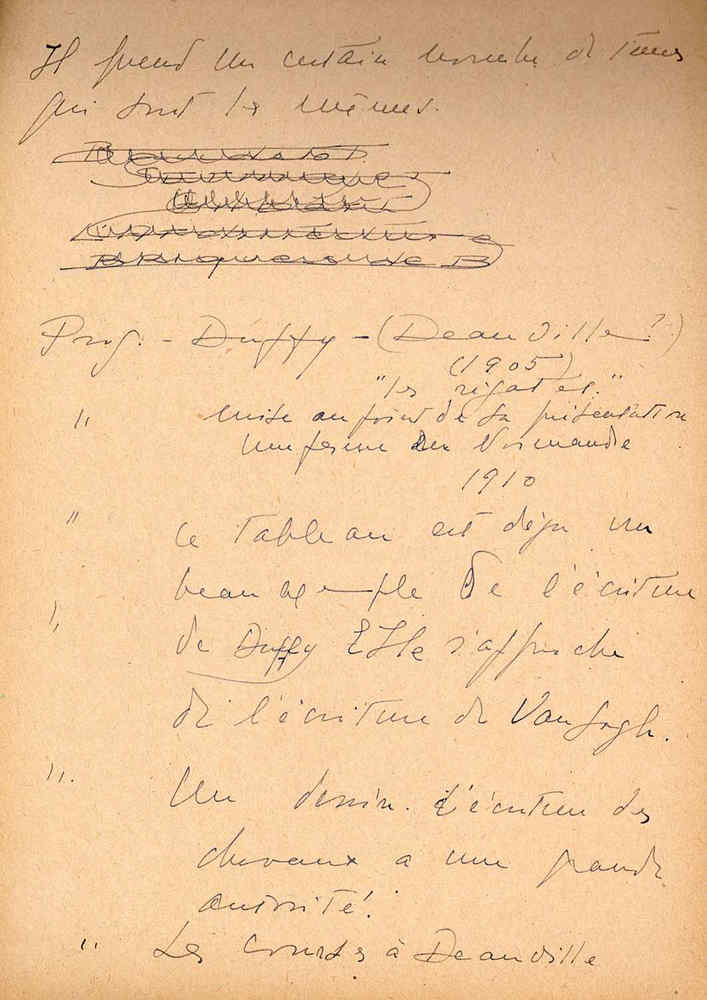 Il prend un certain nombre de tons
qui sont les mêmes.
Proj. - Duffy - (Deauville?)
(1905)
"les régates."
" mise au point de sa présentation
une ferme en Normandie
1910
" Ce tableau est déjà un
beau exemple de l'écriture
" de Duffy Elle s'approche
de l'écriture de Van Gogh.
" Un dessin. L'écriture des
chevaux a une grande
autorité.
" Les Courses à Deauville